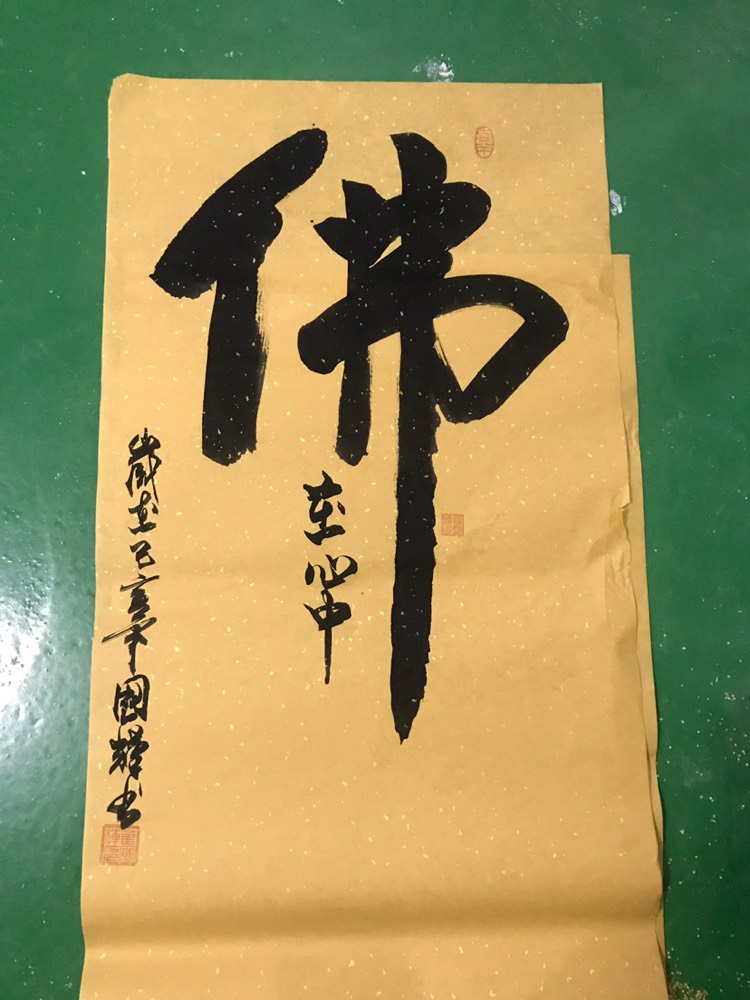 佛
在心中
歲在己亥年國书